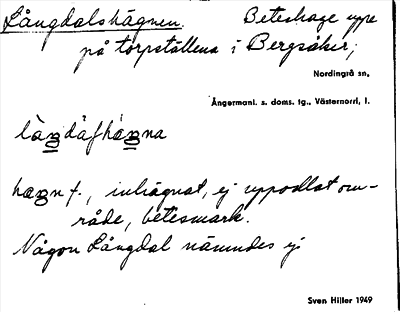 Långdalshägnen. Beteshage uppe
på torpställena i Bergsåker;
Nordingrå sn,
Ångermanl. s. doms. tg., Västernorrl, l.
hägn f., inhägnat, ej uppodlat om-
råde, betesmark.
Någon Långdal nämndes ej
Sven Hiller 1949